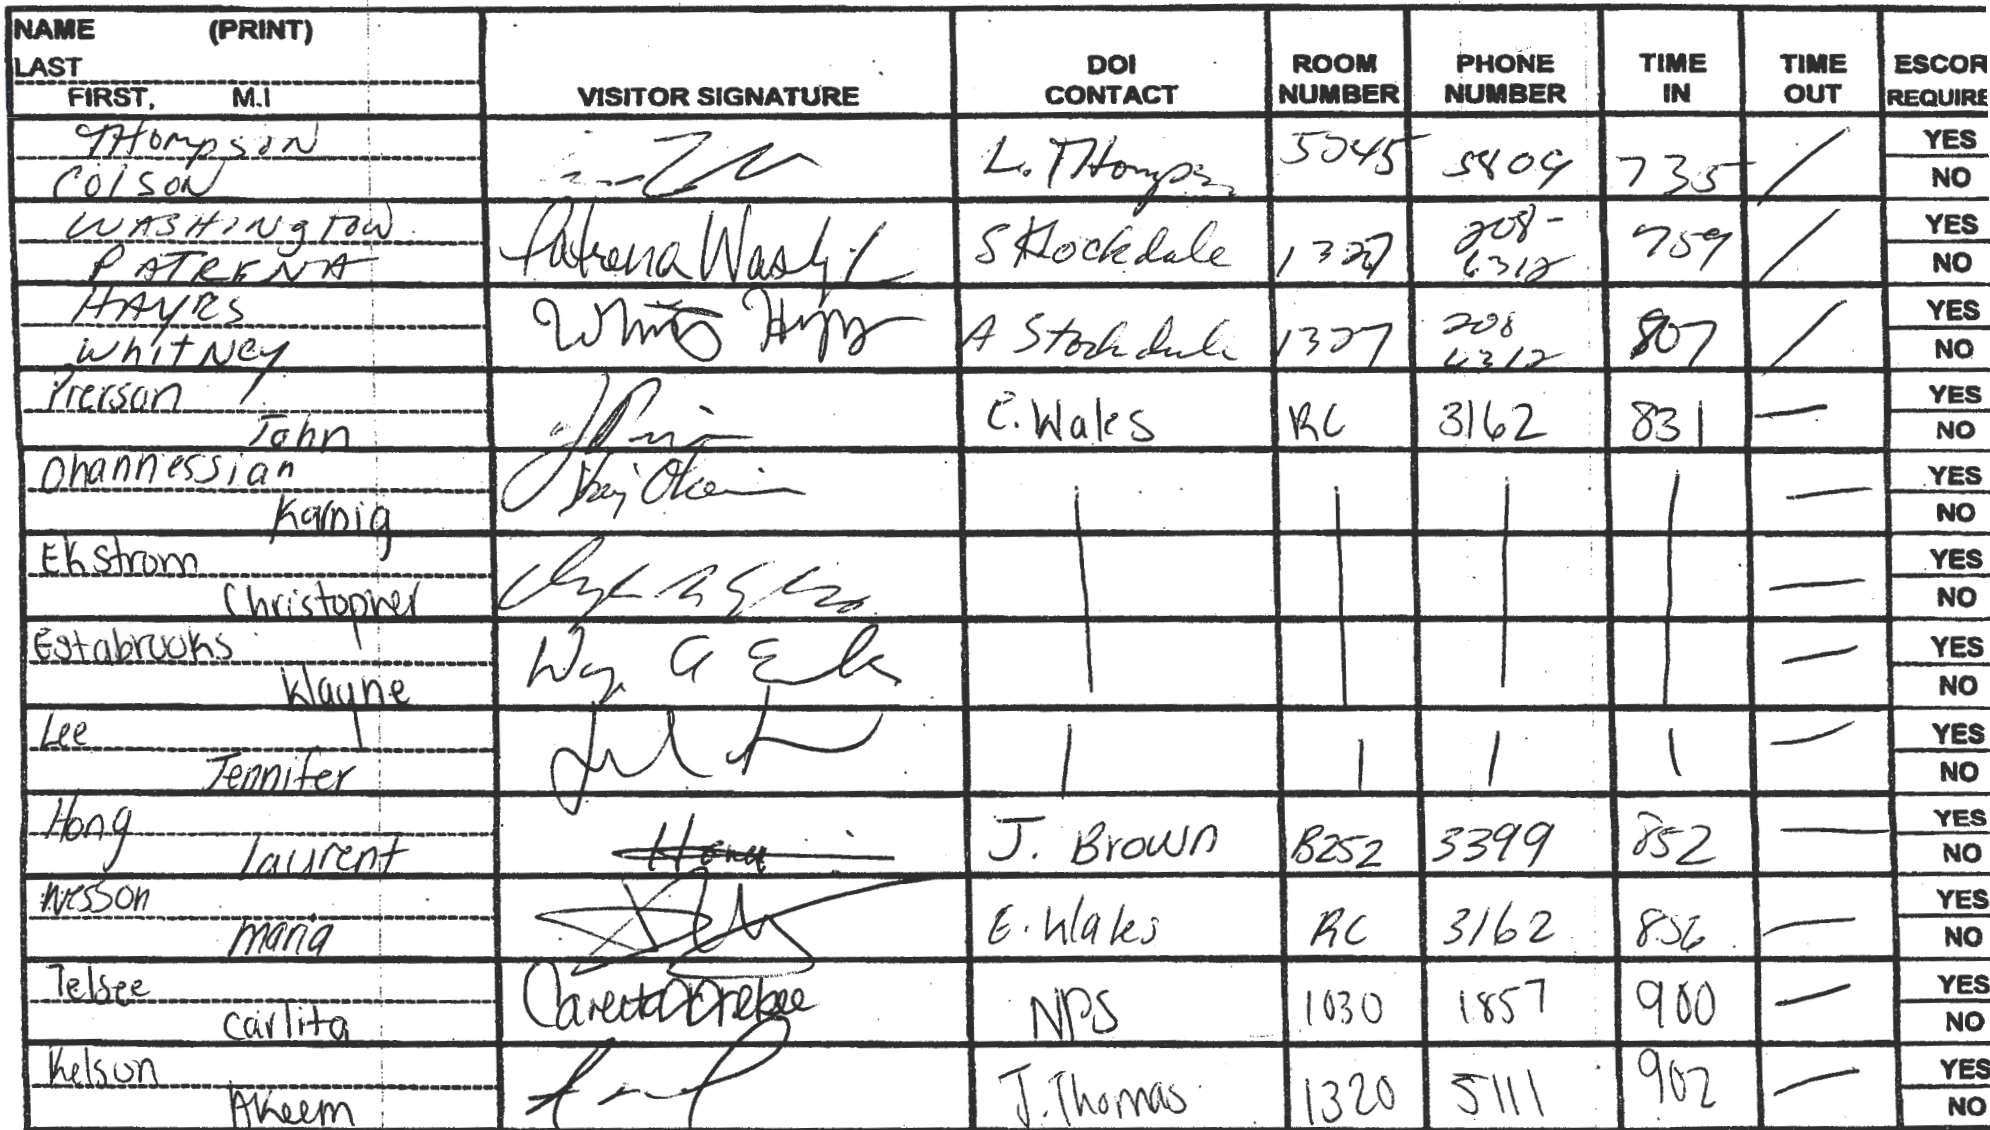 NAME (PRINT)
LAST
FIRST, M.I
VISITOR SIGNATURE
DOI CONTACT
ROOM NUMBER
PHONE NUMBER
TIME IN
TIME OUT
ESCOR
REQUIRE
THompson
Colson
L. THompson 5045 5809 735 /
YES
NO
WASHINgTON
PATRENA
Patrena S Stockdale 1327 208-6312 759 /
YES
NO
HAYES
WhitNey
A Stockdale 1327 208 6312 807 /
YES
NO
Pierson
John
E. Wales RC 3162 831 —
YES
NO
Ohannessian
Karnig
| | | | —
YES
NO
Ekstrom
Christopher
| | | | —
YES
NO
Estabrooks
Wayne
| | | | —
YES
NO
Lee
Jennifer
| | | | —
YES
NO
Hong
laurent
Hong J. Brown B252 3399 852 —
YES
NO
maria
E. Wales RC 3162 856 —
YES
NO
Telsee
Carlita
NPS 1030 1857 900 —
YES
NO
Kelson
AKeem
J. Thomas 1320 5111 902 —
YES
NO